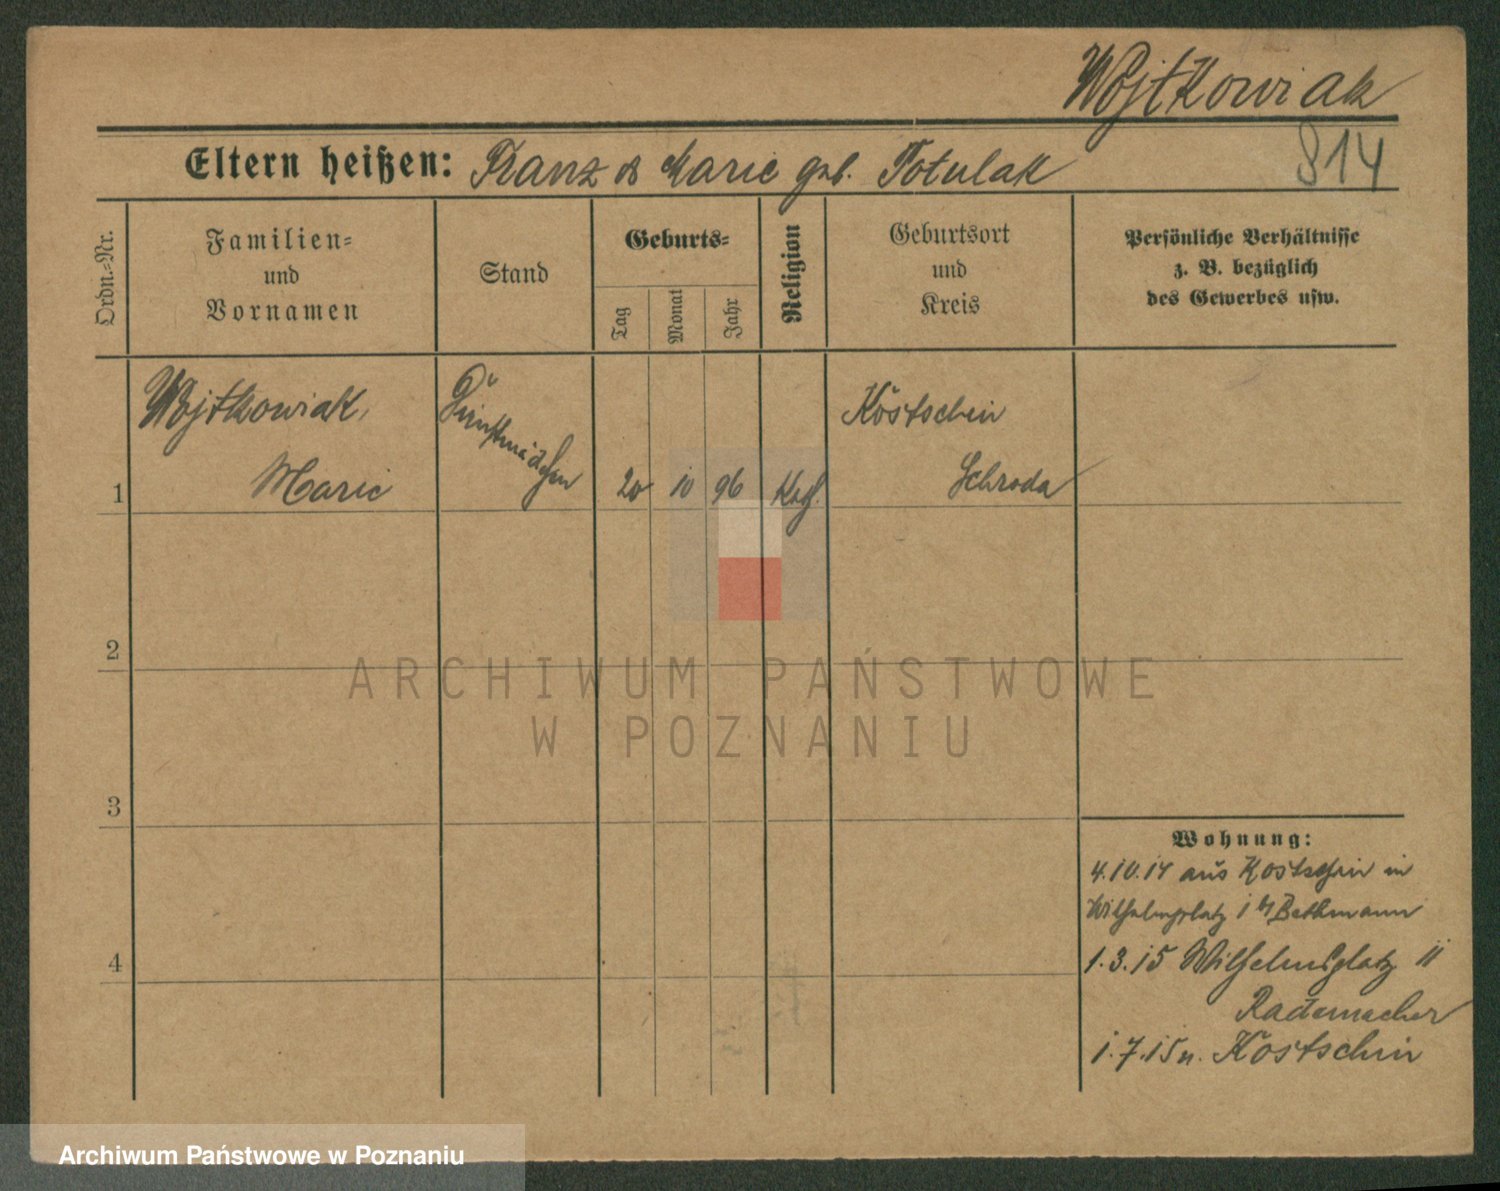 Wojtkowiak
814
Eltern heißen: Franz & Marie geb. Potulak
Ordn.=Nr.
Familien=
und
Vornamen
Stand
Geburts=
Tag
Monat
Jahr
Religion
Geburtsort
und
Kreis
Persönliche Verhältnisse
z. B. bezüglich
des Gewerbes usw.
Wojtkowiak,
Marie
Dienstmädchen
20 10 96 Kath.
Kostschin
Schroda
1
2
3
4
Wohnung:
4.10.14 aus Kostschin in
Wilhelmsplatz 1 b/ Bethmann
1.3.15 Wilhelmsplatz 11
Rademacher
1.7.15 n. Kostschin
ARCHIWUM PAŃSTWOWE
W POZNANIU
Archiwum Państwowe w Poznaniu